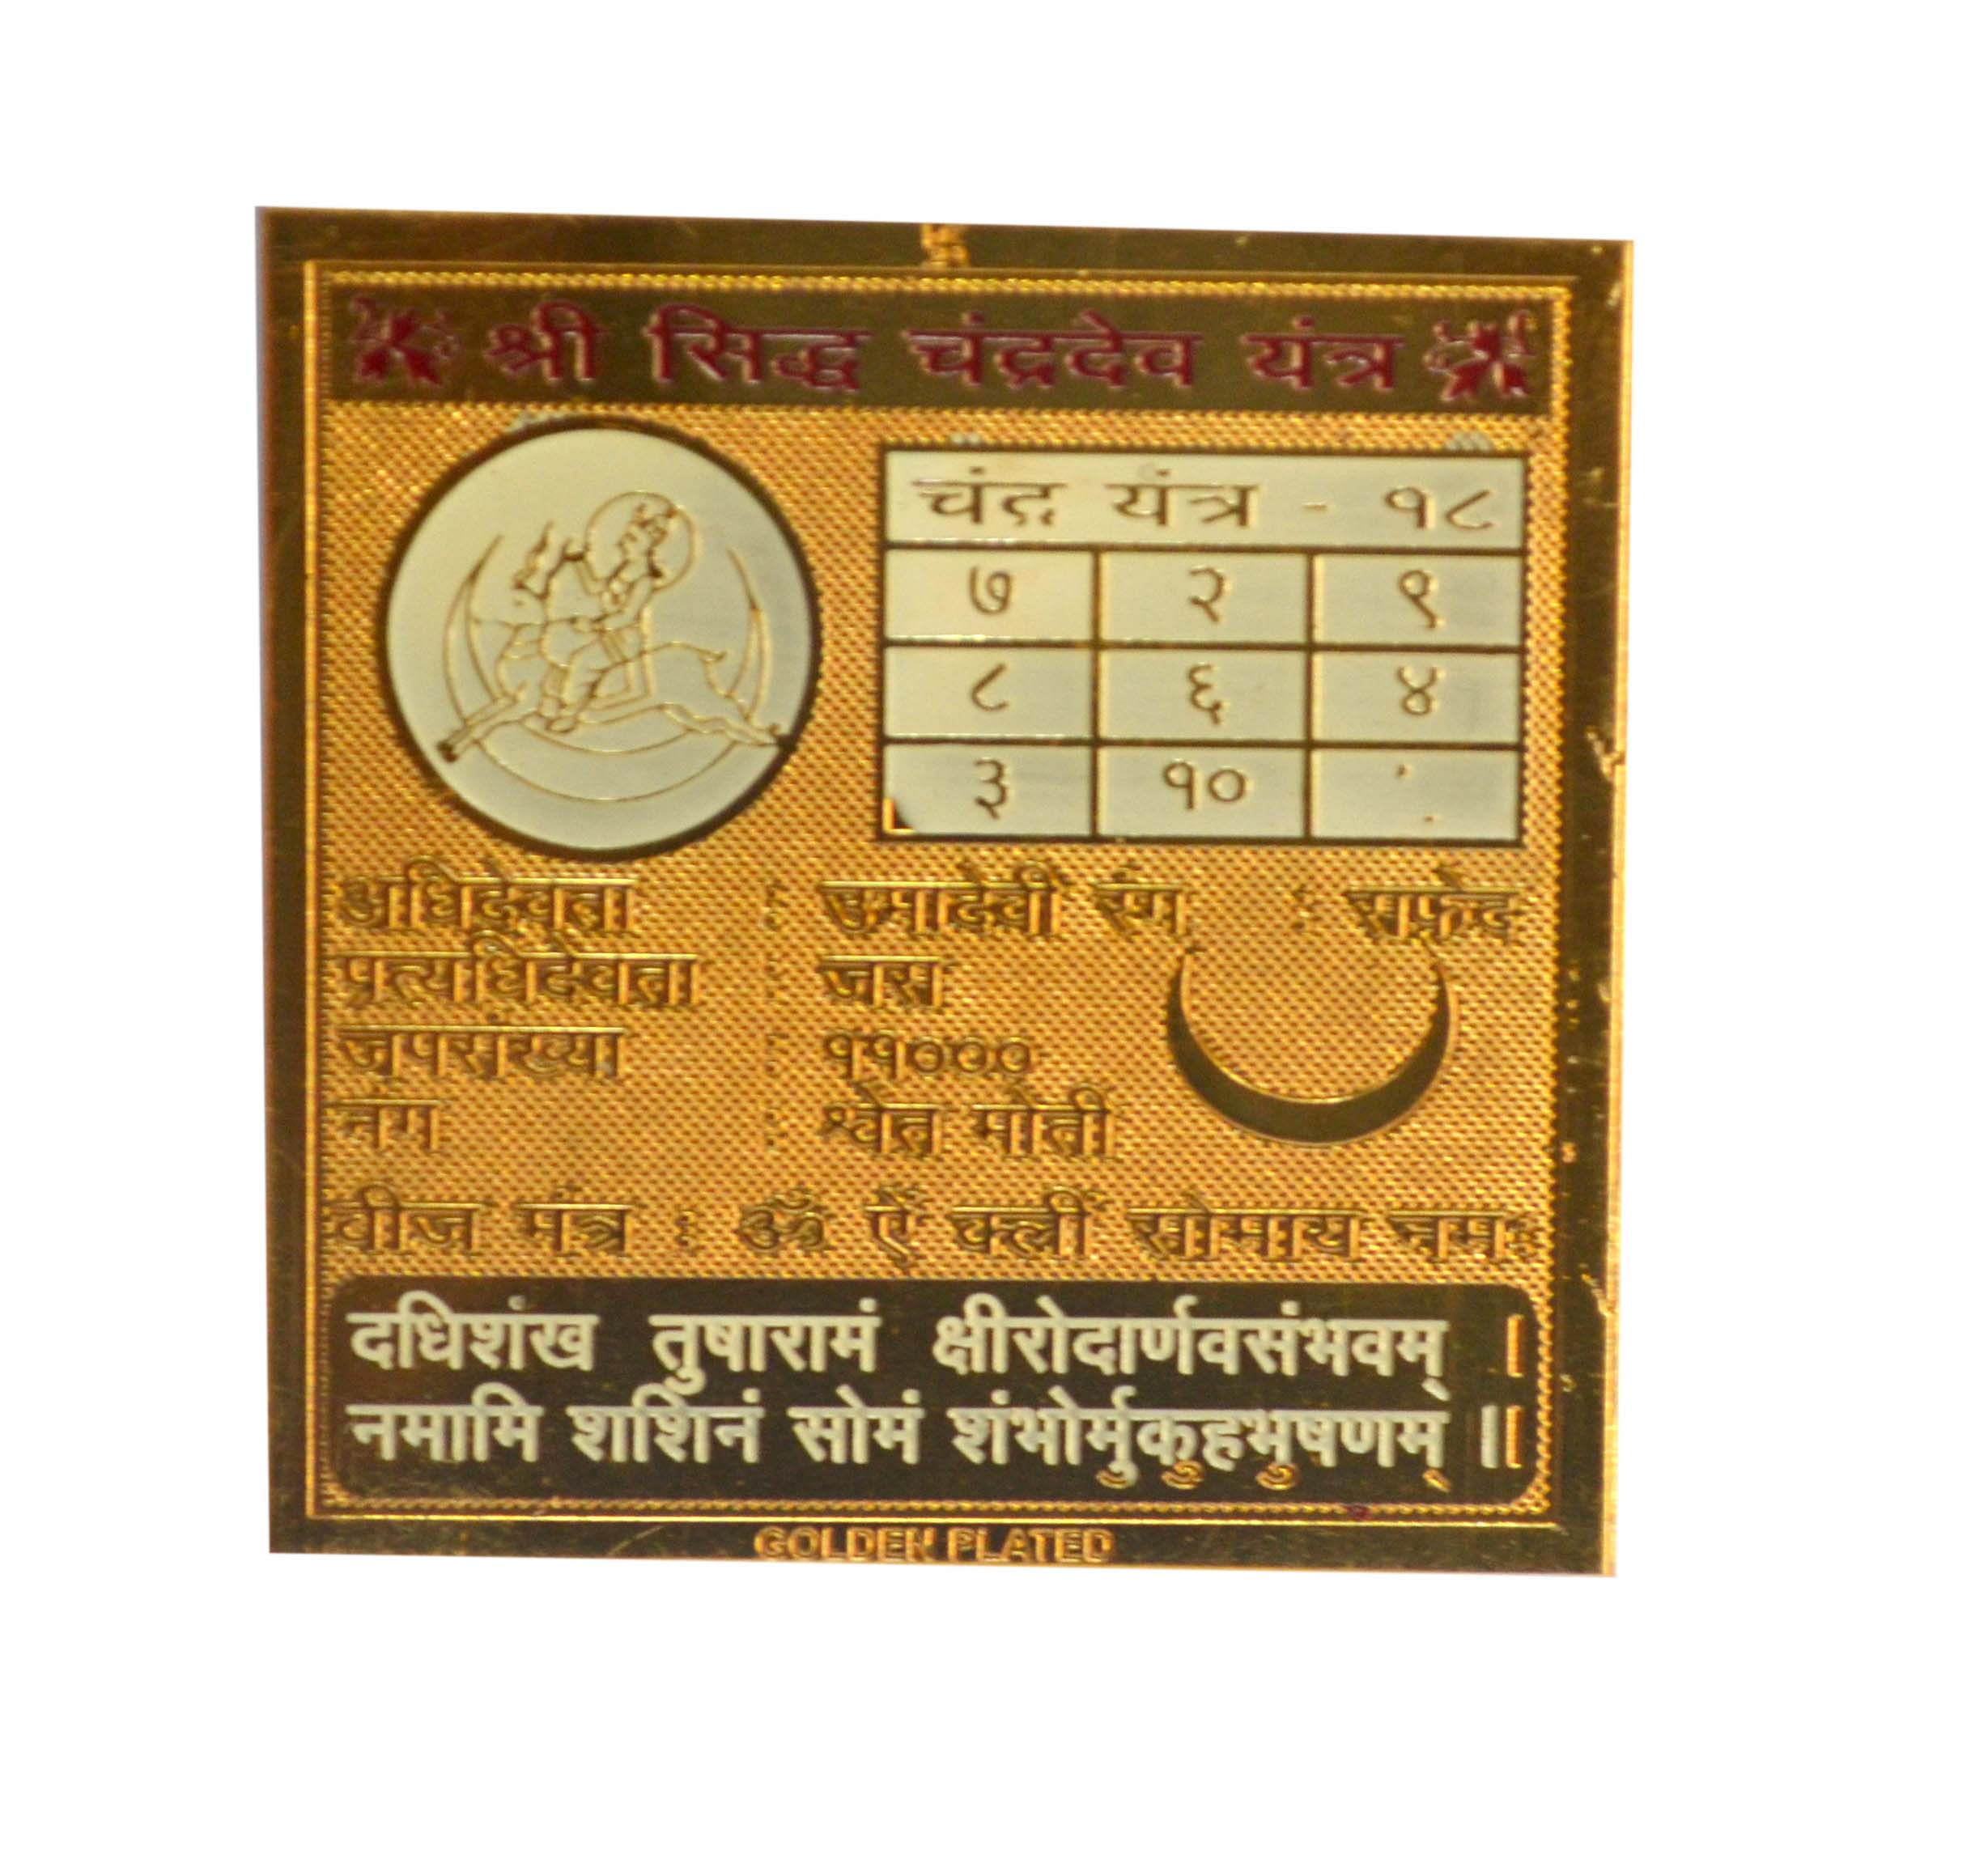 श्री सिद्ध चंद्रदेव यंत्र
चंद्र यंत्र - १८
७ २ ९
८ ६ ४
३ १०
अधिदेवता : उमादेवी रंग : सफेद
प्रत्यधिदेवता : जस
जपसंख्या : ११०००
नंग : श्वेत मोती
बीज मंत्र : ॐ ऐं क्लीं सोमाय नमः
दधिशंख तुषारामं क्षीरोदार्णवसंभवम् ।
नमामि शशिनं सोमं शंभोर्मुकुहभुषणम् ॥
GOLDEN PLATED